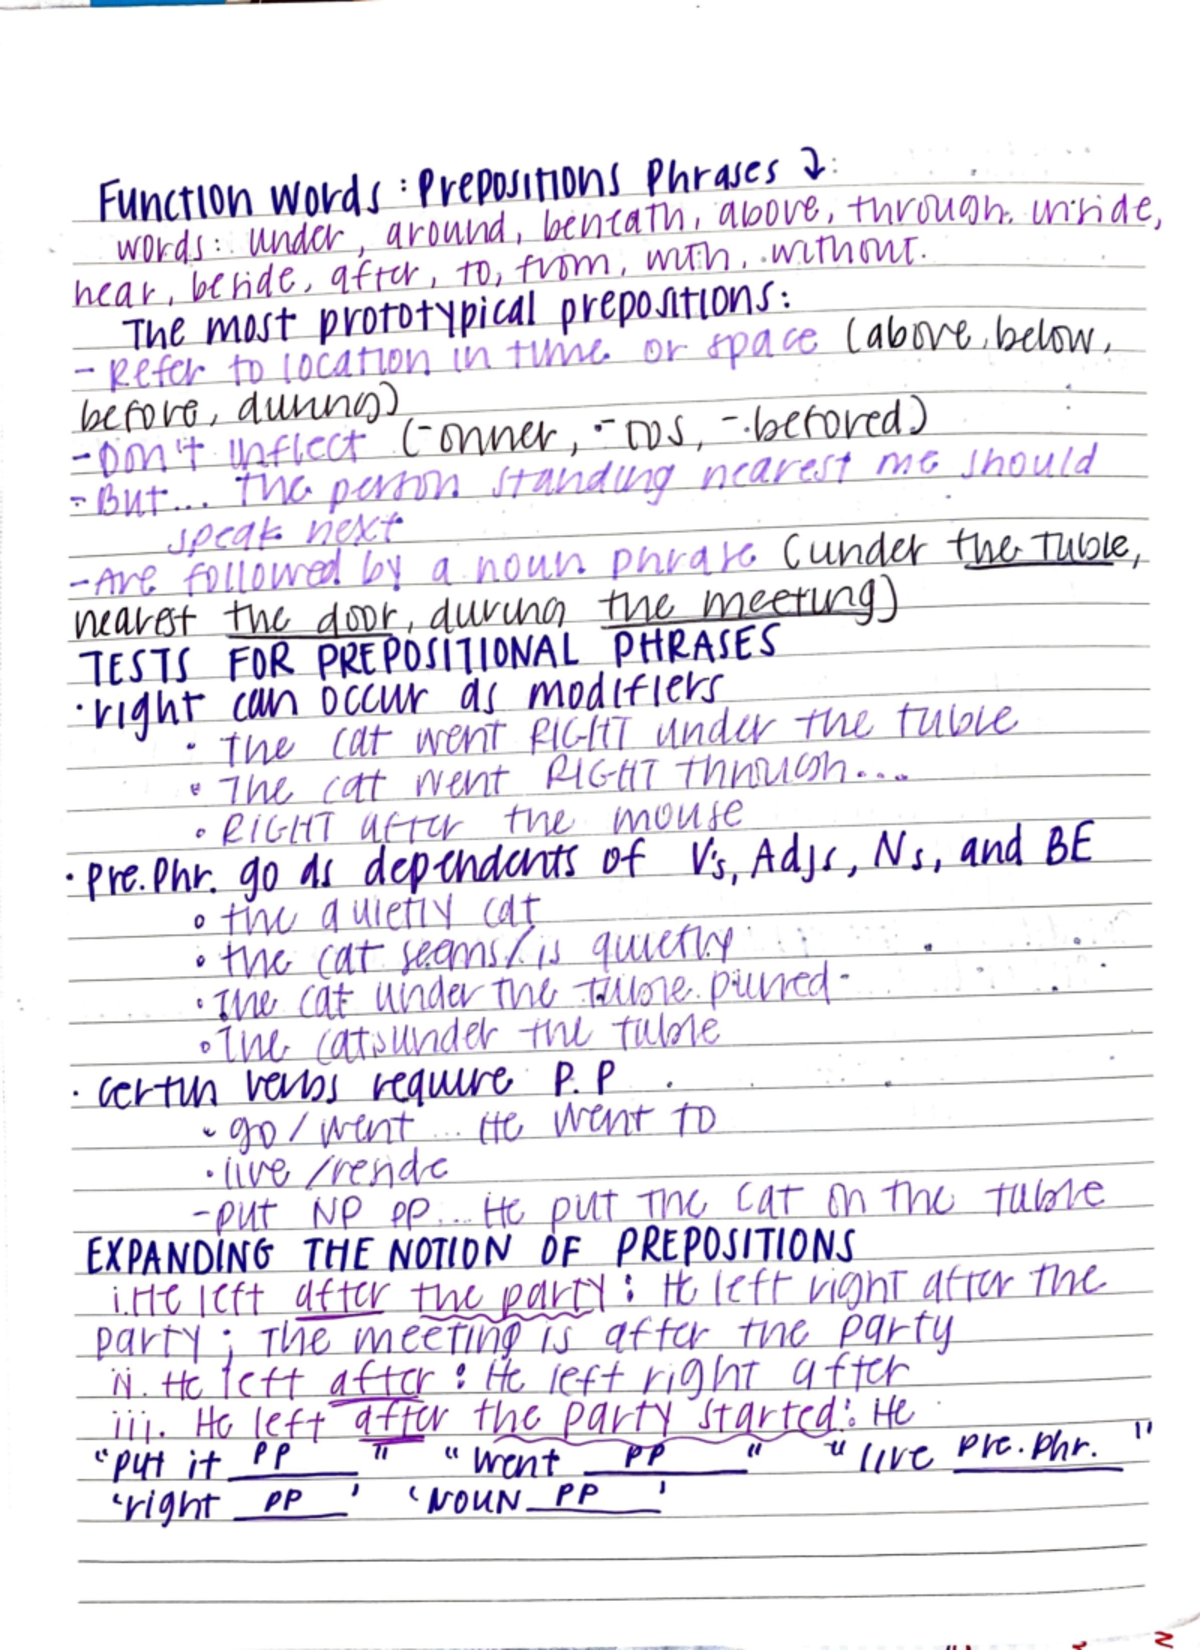 Function Words: Prepositions Phrases ↴:
words: under, around, beneath, above, through, inside,
near, beside, after, to, from, with, without.
The most prototypical prepositions:
- Refer to location in time or space (above, below,
before, during)
- Don't inflect (-onner, -tos, -befored)
- But... the person standing nearest me should
speak next
- Are followed by a noun phrase (under the table,
nearest the door, during the meeting)
TESTS FOR PREPOSITIONAL PHRASES
• right can occur as modifiers
• The cat went RIGHT under the table
• The cat went RIGHT through...
• RIGHT after the mouse
• Pre.Phr. go as dependents of V's, Adjs, Ns, and BE
• the quietly cat
• the cat seems/is quietly
• The cat under the table purred
• The cat under the table
• certain verbs require P.P
• go/went ... He went to
• live/reside
- put NP PP... He put the cat on the table
EXPANDING THE NOTION OF PREPOSITIONS
i. He left after the party: He left right after the
party; The meeting is after the party
ii. He left after: He left right after
iii. He left after the party started: He
"put it PP" "went PP" "live pre.phr."
'right PP' 'NOUN PP'